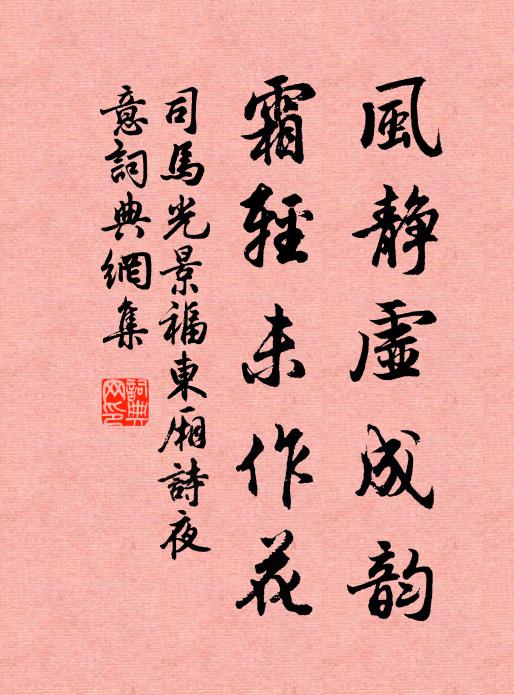 風靜虛成韵
霜輕未作花
司馬光景福東厢詩夜
意詞典網集
詞典網印